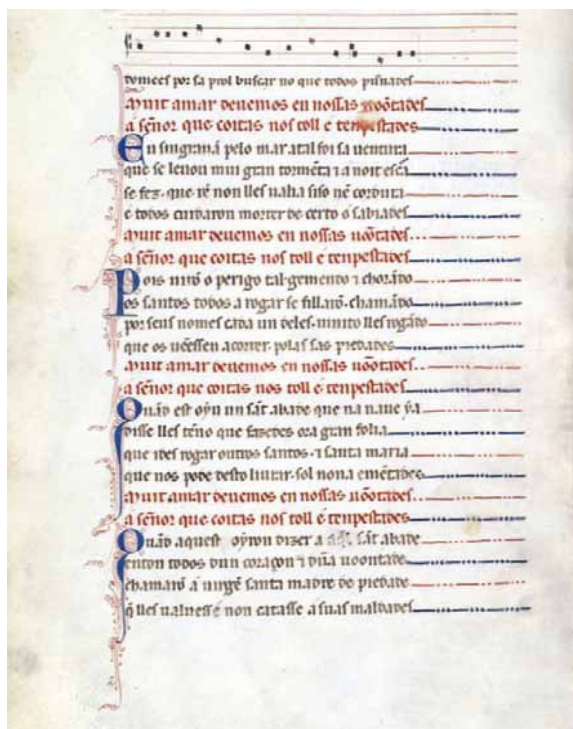 tonces por sa prol buscar no que todos punnades
Muit amar deuemos en nossas uoontades
a señor que coitas nos toll e tenpestades
En sin gran ã pelo mar atal foi sa uentura
que se leuou mui gran tormẽta ⁊ a noit escã
se fez. que rẽ non lles ualia siso nẽ cordura
e todos cuidaron morrer de certo o sabiades
Muit amar deuemos en nossas uoõtades
a señor que coitas nos toll e tenpestades
Pois uirõ o perigo tal gemendo ⁊ chorãdo
os santos todos a rogar se fillarõ. chamãdo
por seus nomes cada un deles. muito lles rogãdo
que os uẽessen acorrer. polas sas piedades
Muit amar deuemos en nossas uoõtades
a señor que coitas nos toll e tenpestades
Quãd est oyu un sãt abade que na naue ya
disse lles tẽno que fazedes ora gran folia
que ides rogar outros santos. ⁊ santa maria
que nos pode desto liurar. sol nona emẽtades
Muit amar deuemos en nossas uoõtades
a señor que coitas nos toll e tenpestades
Quãd aquest oyron dizer a sãt abade
enton todos dun coraçon ⁊ dũa uoontade
chamarõ a uirgẽ santa madre de piedade
q̃ lles ualuesse non catasse a suas maldades